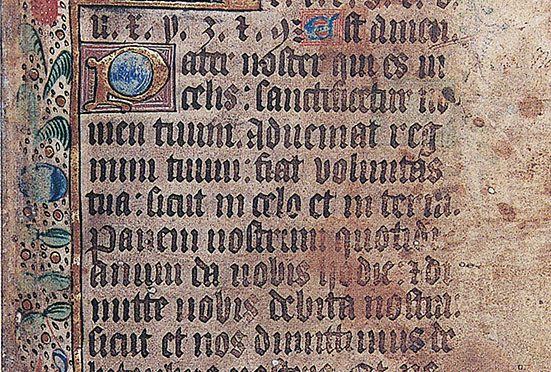 u. x. y. z. ⁊. 9: Est amen.
Pater noster qui es in
celis: sanctificetur no
men tuum. Adueniat reg
num tuum: fiat voluntas
tua: sicut in celo et in terra.
Panem nostrum quotidi
anum da nobis hodie: ⁊ di
mitte nobis debita nostra:
sicut et nos dimittimus de